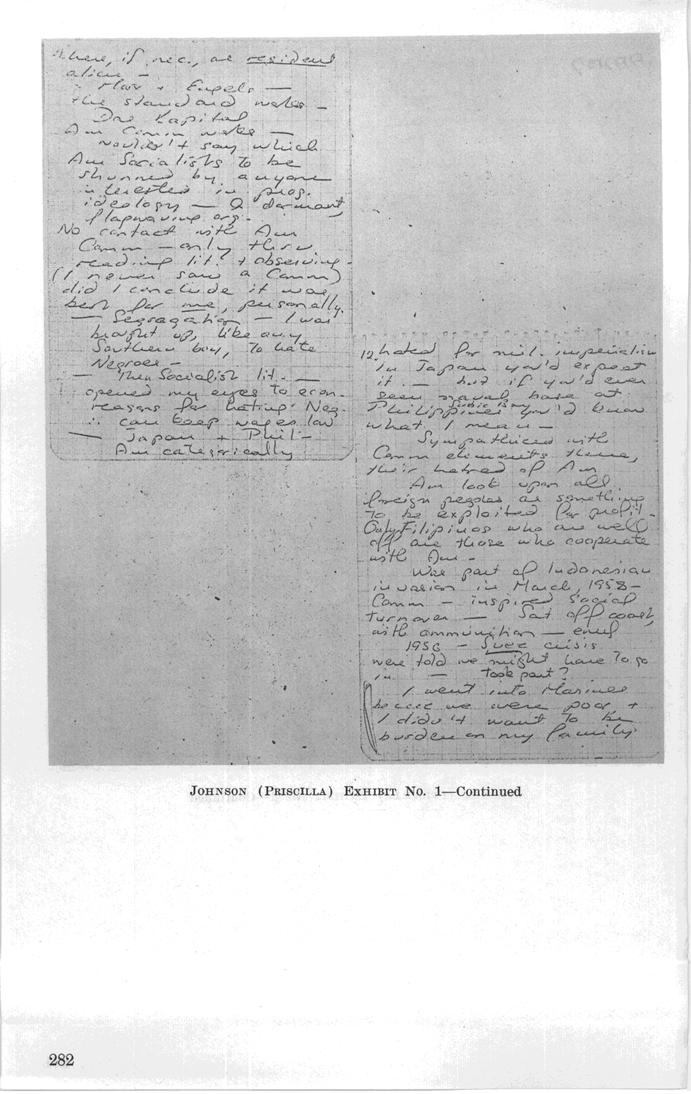 here, if nec., as resident
alien —
Marx + Engels —
the standard works —
Das Kapital
Am Comm works —
wouldn't say which
Am Socialists to be
shunned by anyone
interested in prog.
ideology — a dormant,
flagwaving org.
No contact with Am
Comm — only thru
reading lit. + observing.
(I never saw a Comm)
did I conclude it was
best for me, personally.
— Segragation — I was
brought up, like any
Southern boy, to hate
Negroes —
— Then Socialist lit. —
opened my eyes to econ.
reasons for hating Neg.
∴ can keep wages low
— Japan + Phil —
Am categorically
12. hated for mil. imperialism
In Japan you'd expect
it — but if you'd ever
seen naval base at
Subic
Philippines you'd know
what I mean —
Sympathized with
Comm elements there,
their hatred of Am
Am look upon all
foreign peoples as something
to be exploited for profit.
Only Filipinos who are well
off are those who cooperate
with Am.
Was part of Indonesian
invasion in March, 1958 —
Comm - inspired social
turnover — Sat off coast,
with ammunition — enuf
1956 — Suez crisis
were told we might have to go
in — took part?
I went into Marines
because we were poor +
I didn't want to be
burden on my family
JOHNSON (PRISCILLA) EXHIBIT No. 1—Continued
282